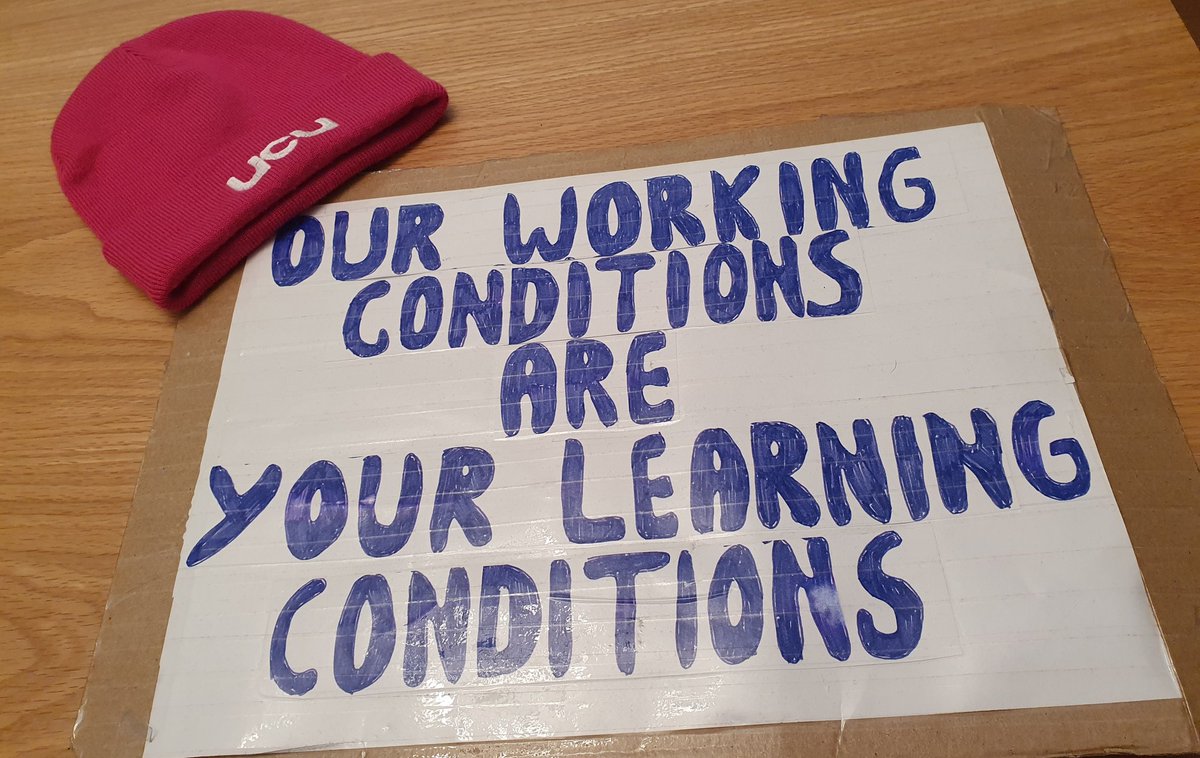 ucu
OUR WORKING
CONDITIONS
ARE
YOUR LEARNING
CONDITIONS